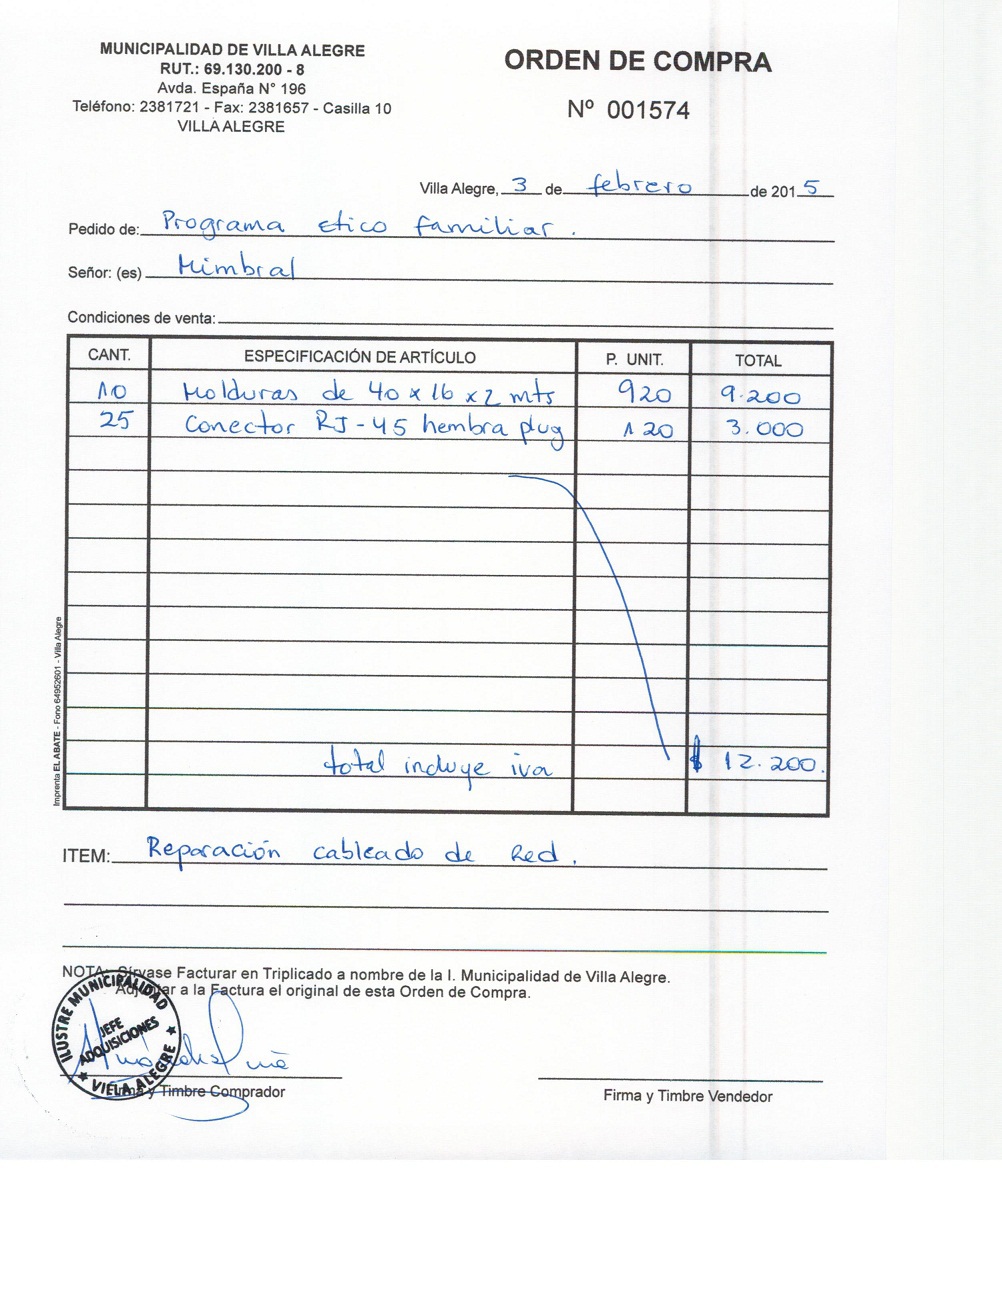 MUNICIPALIDAD DE VILLA ALEGRE
RUT.: 69.130.200 - 8
Avda. España N° 196
Teléfono: 2381721 - Fax: 2381657 - Casilla 10
VILLA ALEGRE
ORDEN DE COMPRA
Nº 001574
Villa Alegre, 3 de febrero de 2015
Pedido de: Programa etico familiar.
Señor: (es) Mimbral
Condiciones de venta:
CANT. ESPECIFICACIÓN DE ARTÍCULO P. UNIT. TOTAL
10 Molduras de 40 x 16 x 2 mts 920 9.200
25 Conector RJ-45 hembra plug 120 3.000
total incluye iva $ 12.200.
Imprenta EL ABATE - Fono 64952601 - Villa Alegre
ITEM: Reparación cableado de Red.
NOTA: Sírvase Facturar en Triplicado a nombre de la I. Municipalidad de Villa Alegre.
Adjuntar a la Factura el original de esta Orden de Compra.
ILUSTRE MUNICIPALIDAD
JEFE
ADQUISICIONES
VILLA ALEGRE
Firma y Timbre Comprador
Firma y Timbre Vendedor